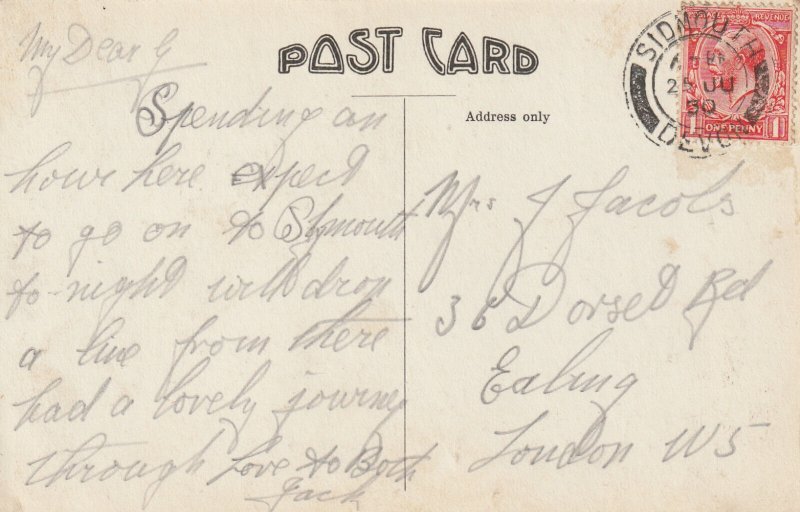 POST CARD
Address only
My Dear G
Spending an
hour here expect
to go on to Plymouth
to-night will drop
a line from there
had a lovely journey
through Love to Both
Jack
Mrs J Jacobs
36 Dorset Rd
Ealing
London W5
SIDMOUTH
25 JU
30
DEVON
REVENUE
ONE PENNY
1